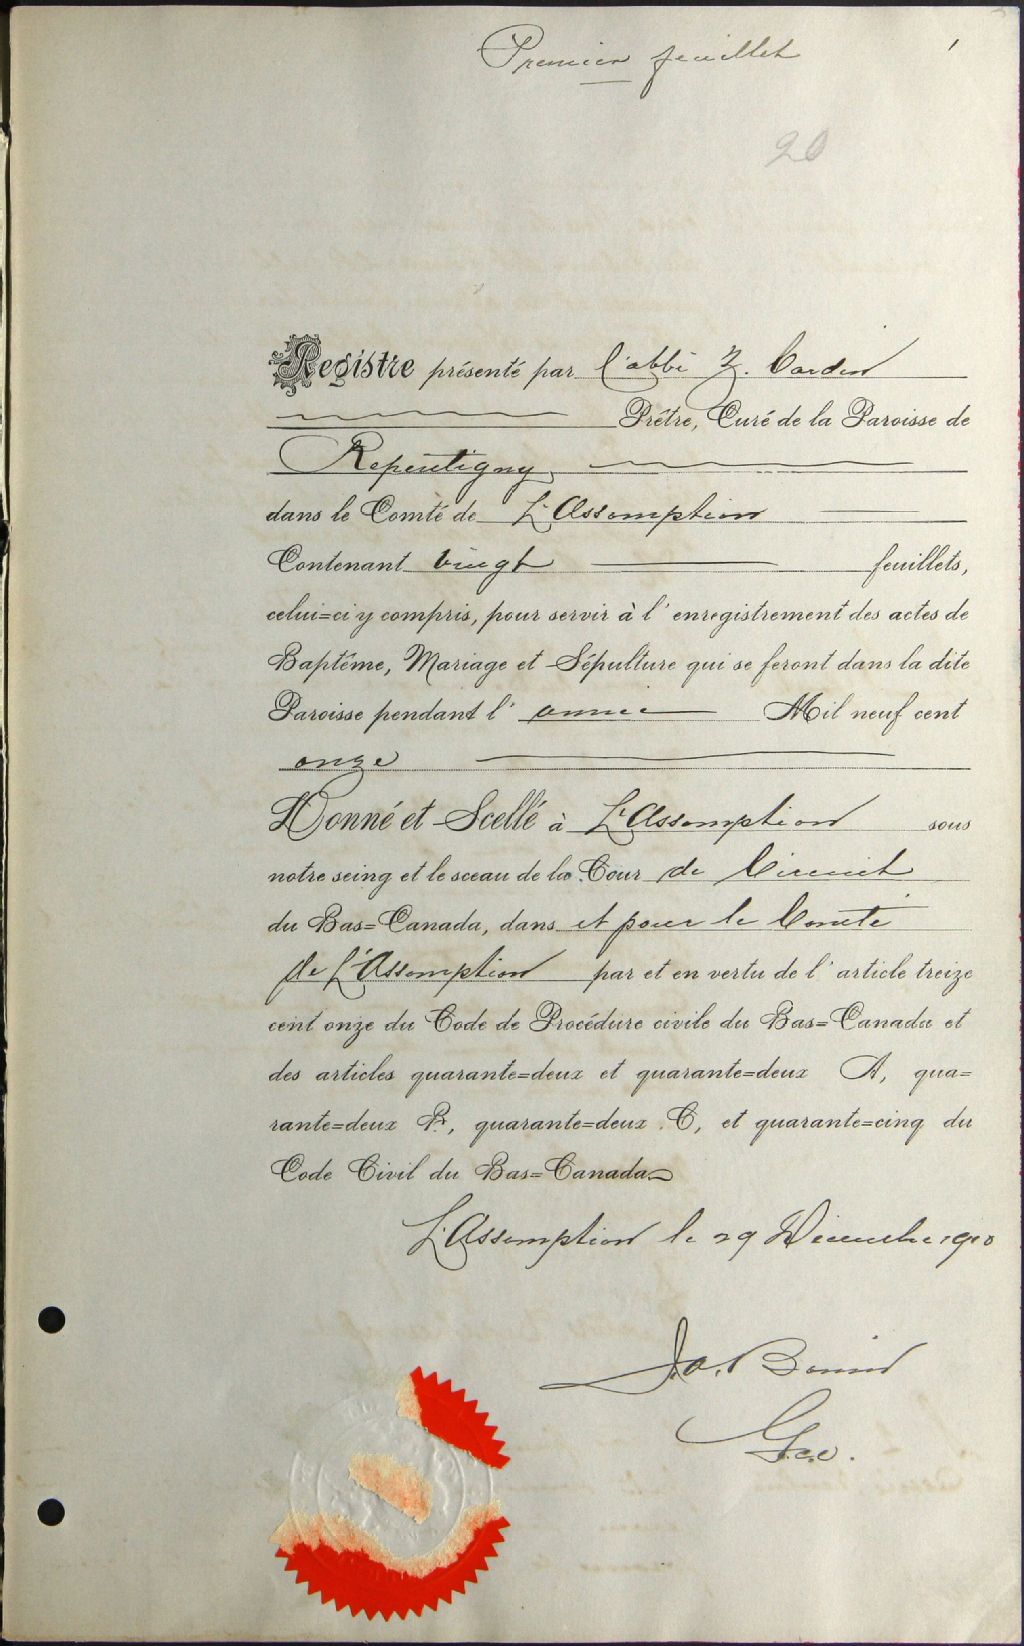 Premier feuillet
1
20
Registre présenté par l'abbé Z. Cardin
Prêtre, Curé de la Paroisse de
Repentigny
dans le Comté de L'Assomption
Contenant vingt feuillets,
celui=ci y compris, pour servir à l'enregistrement des actes de
Baptême, Mariage et Sépulture qui se feront dans la dite
Paroisse pendant l'année Mil neuf cent
onze
Donné et Scellé à L'Assomption sous
notre seing et le sceau de la Cour de Circuit
du Bas=Canada, dans et pour le Comté
de L'Assomption par et en vertu de l'article treize
cent onze du Code de Procédure civile du Bas=Canada et
des articles quarante=deux et quarante=deux A, qua=
rante=deux B, quarante=deux C, et quarante=cinq du
Code Civil du Bas=Canada
L'Assomption le 29 Décembre 1910
J.O.